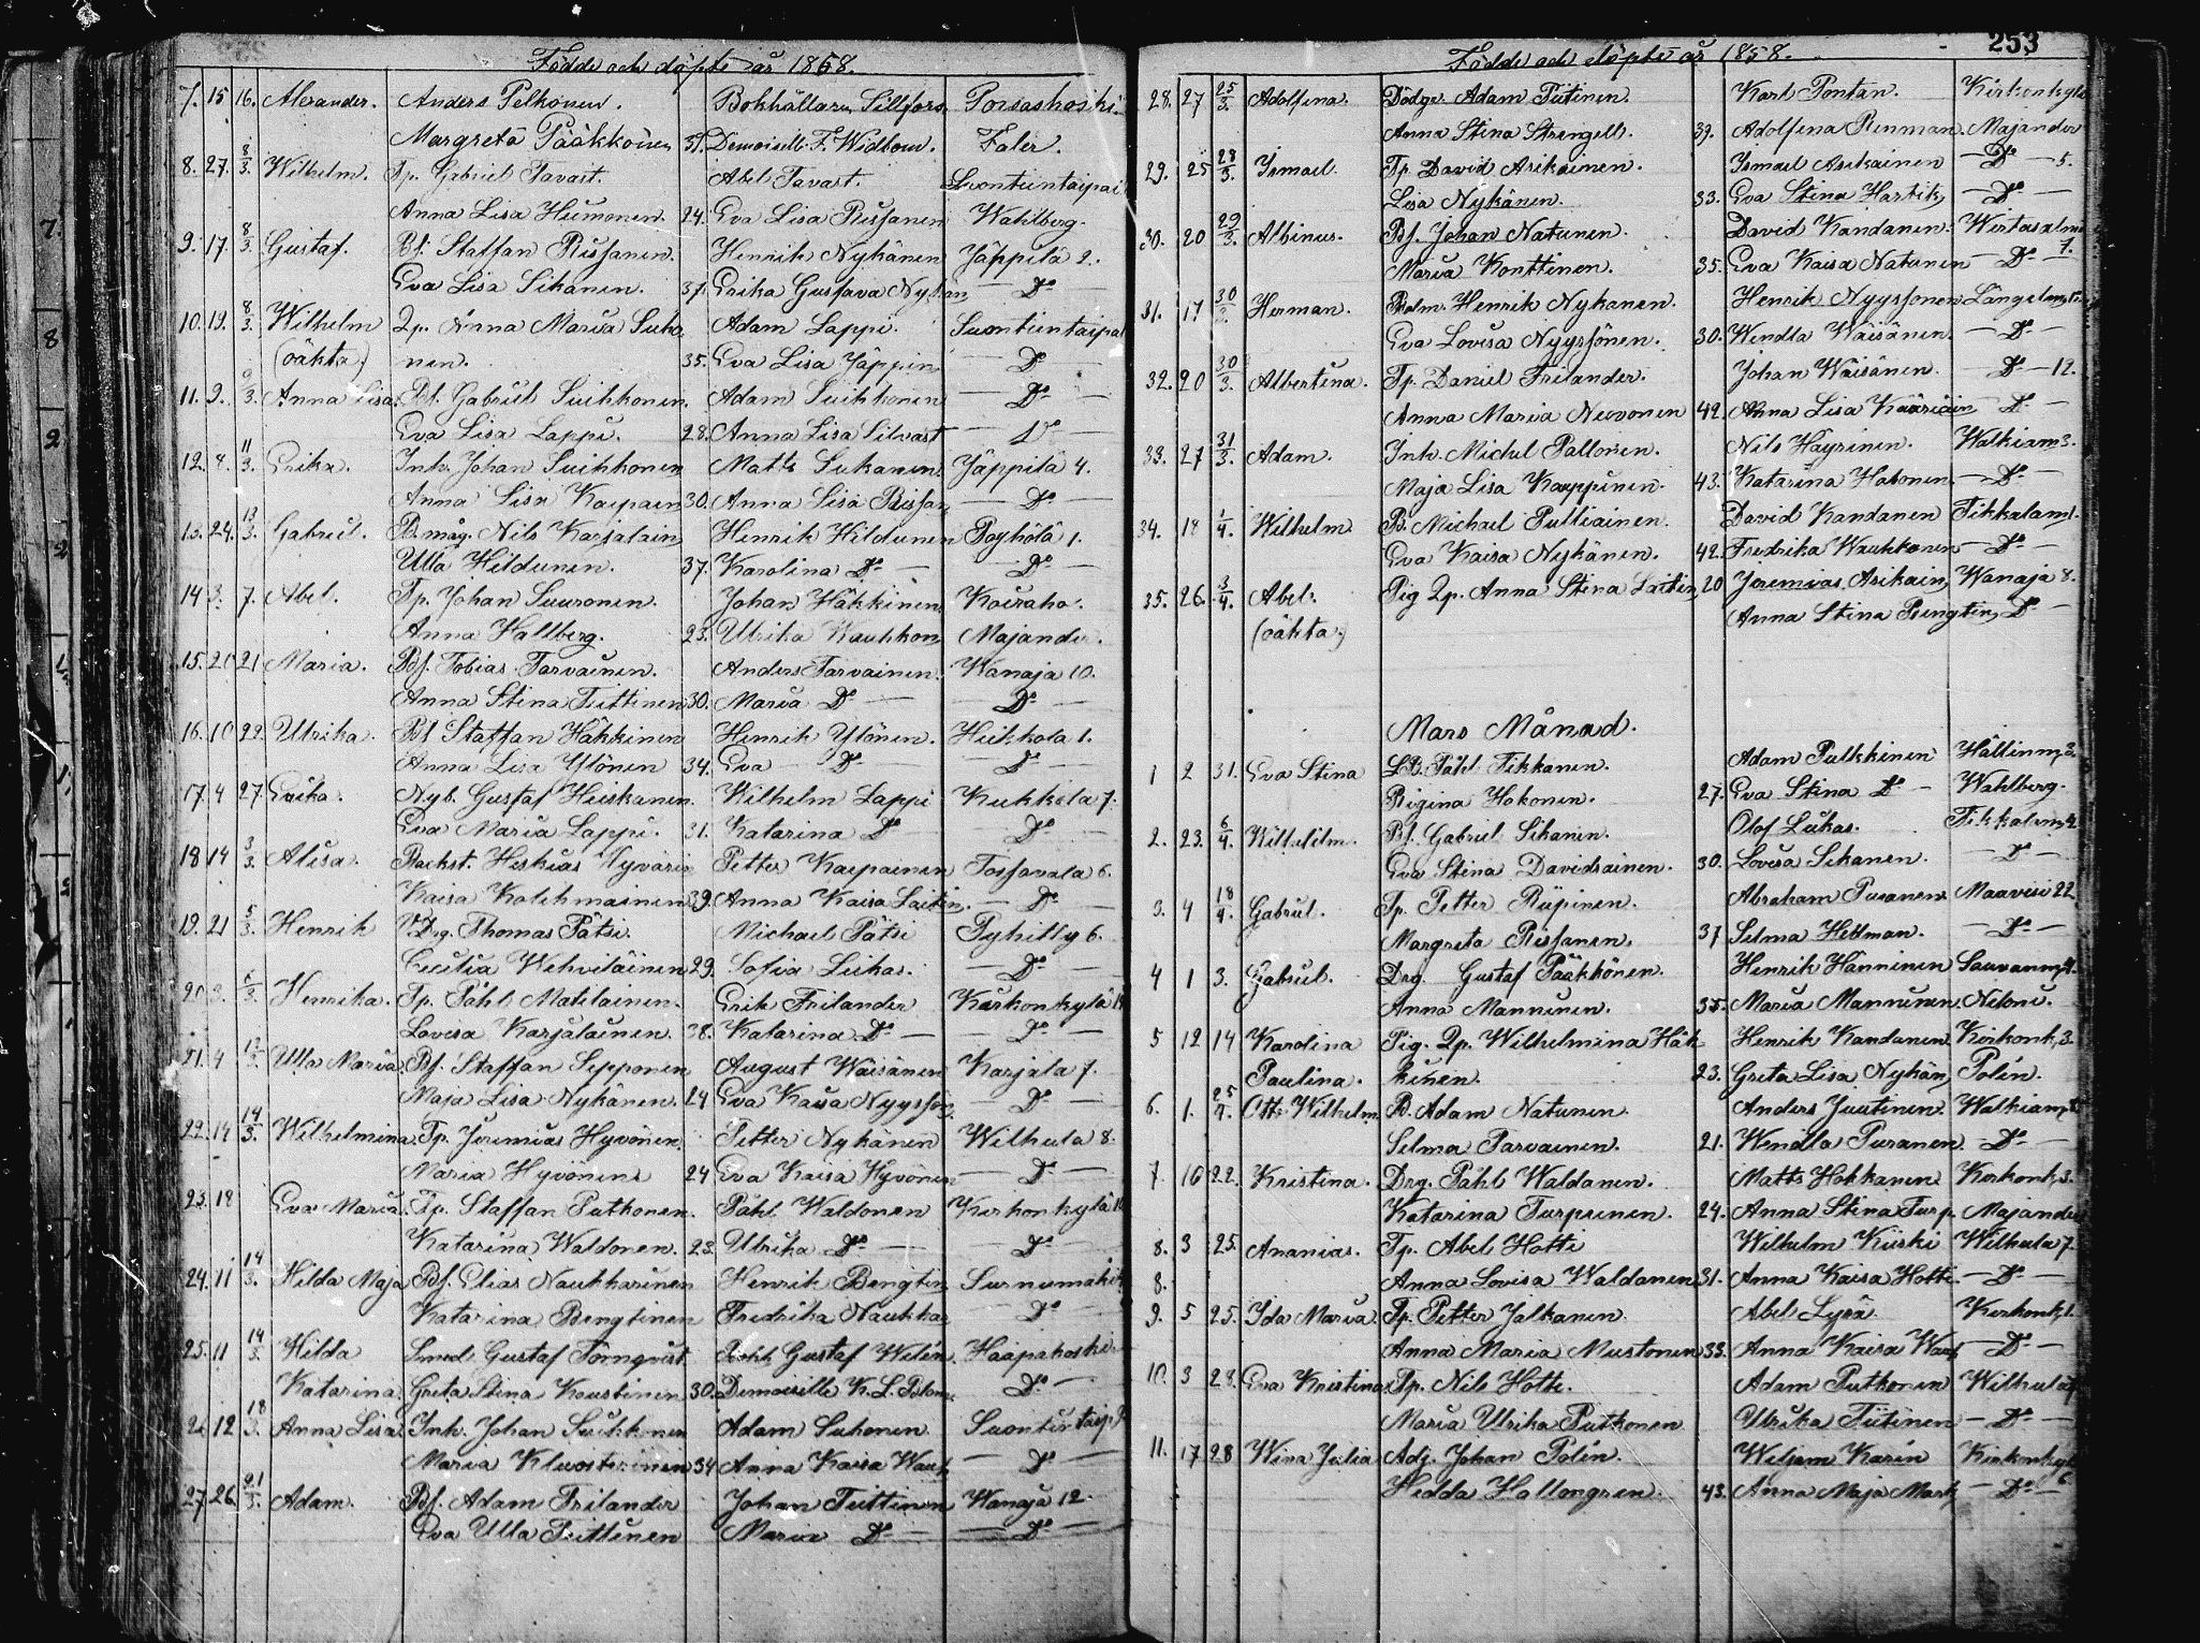 Födde och döpte år 1868.
7. 15 16. Alexander. Anders Pelkonen. Bokhållaren Sillfors Porsaskoski
Margreta Pääkkönen 39. Demoiselle F. Widbom. Faler.
8. 27. 8/3. Wilhelm. Tp. Gabriel Tavast. Abel Tavast. Suontientaipal
Anna Lisa Heimonen. 24. Eva Lisa Rissanen Wahlberg.
9. 17. 8/3. Gustaf. Bf. Staffan Rissanen. Henrik Nykänen Jäppilä 2.
Eva Lisa Sikanen. 37. Erika Gustava Nykän Do
10. 19. 8/3. Wilhelm Qp. Anna Maria Suho Adam Lappi. Suontientaipal
(oäkta) nen. 35. Eva Lisa Jäppin Do
11. 9. /3. Anna Lisa. Bf. Gabriel Suihkonen. Adam Suihkonen Do
Eva Lisa Lappi. 28. Anna Lisa Silvast Do
12. 8. 11/3. Erika. Inh. Johan Suihkonen Matts Sukanen. Jäppilä 4.
Anna Lisa Kaipain 30. Anna Lisa Rissan Do
13. 24. 13/3. Gabriel. B.måg. Nils Karjalain Henrik Hildunen Poyhölä 1.
Ulla Hildunen. 37. Karolina Do Do
14 3. 7. Abel. Tp. Johan Suuronen. Johan Häkkinen Koiraho.
Anna Hallberg. 23. Ulrika Kauhkon Majander.
15. 20 21 Maria. Bf. Tobias Tarvainen. Anders Tarvainen. Wanaja 10.
Anna Stina Teittinen 30. Maria Do Do
16. 10 22. Ulrika. Bf Staffan Häkkinen Henrik Ylönen. Heikkola 1.
Anna Lisa Ylönen 34. Eva Do Do
17. 4 27. Erika. Nyb. Gustaf Heiskanen. Wilhelm Lappi Kukkola 7.
Eva Maria Lappi. 31. Katarina Do Do
18 14 3/3. Alisa. Backst. Heskias Hyvärin Petter Kaipainen Tossavala 6.
Kaisa Kolehmainen 39. Anna Kaisa Laitin. Do
19. 21 5/3. Henrik Drg. Thomas Pätsi. Michael Pätsi Pyhilly 6.
Cecilia Wehviläinen 29. Sofia Leikas. Do
20 3. 6/3. Henrika. Tp. Påhl Matilainen. Erik Frilander Kärkonkylä
Lovisa Karjalainen. 38. Katarina Do Do
21. 4 Ulla Maria. Bf. Staffan Sepponen August Wäisänen Karjala 7.
Maja Lisa Nykänen. 24 Eva Kaisa Nyyssön. Do
22. 14 14/3. Wilhelmina. Tp. Jeremias Hyvönen. Petter Nykänen Wilhula 8.
Maria Hyvönen 24 Eva Kaisa Hyvönen Do
23. 18 Eva Maria. Tp. Staffan Putkonen. Påhl Waldonen Kirkonkylä
Katarina Waldonen. 23. Ulrika Do Do
24. 11 14/3. Hilda Maja Bf. Elias Naukkarinen Henrik Bengtin Surnumäki
Katarina Bengtinen Fredrika Naukkar Do
25. 11 14/3. Hilda Smed Gustaf Törnqvist Gustaf Welén. Haapakoski
Katarina. Greta Stina Koustinen 30. Demoiselle K. L. Do
26 12 18/3. Anna Lisa Inh. Johan Suihkonen Adam Suhonen Suontientaip.
Maria 34 Anna Kaisa Wauh Do
27. 26. 21/3. Adam. Bf. Adam Frilander Johan Teittinen Wanaja 12.
Eva Ulla Teittinen Maria Do Do
253
Födde och döpte år 1858.
28. 27 25/3. Adolfina. Dödgr. Adam Tiitinen. Karl Pontan. Kirkonkylä
Anna Stina Strengell. 39. Adolfina Renman. Majander
29. 25 28/3. Ismael. Tp. David Asikainen. Ismael Asikainen Do 5.
Lisa Nykänen. 33. Eva Stina Hartik Do
30. 20 29/3. Albinus. Bf. Johan Natunen. David Kandanen. Wirtasalmi 7.
Maria Konttinen. 35. Eva Kaisa Natunen Do
31. 17 30/3. Herman. Bolm. Henrik Nykanen. Henrik Nyyssonen Längelm
Eva Lovisa Nyyssönen. 30. Wendla Wäisänen. Do
32. 20 30/3. Albertina. Tp. Daniel Frilander. Johan Wäisänen. Do 12.
Anna Maria Neovonen 42. Anna Lisa Kääriäin Do
33. 27 31/3. Adam. Inh. Michel Pallonen. Nils Häyrinen. Walkiam 3.
Maja Lisa Kauppinen. 43. Katarina Hakonen. Do
34. 18 1/4. Wilhelm B. Michael Pulliainen. David Kandanen Tikkalam 1.
Eva Kaisa Nykänen. 42. Fredrika Wauhkonen Do
35. 26. 3/4. Abel. Pig Qp. Anna Stina Laitin 20 Jeremias Asikain Wanaja 8.
(oäkta) Anna Stina Bengtin Do
Mars Månad.
1 2 31. Eva Stina LB. Påhl Tikkanen. Adam Pulkkinen Hällinm 3.
Regina Hokonen. 27. Eva Stina Do Wahlberg.
2. 23. 6/4. Wilhelm. Bf. Gabriel Sikanen. Olof Liikas. Tikkalam 4
Eva Stina Davidsainen. 30. Lovisa Sikanen. Do
3. 4 18/4. Gabriel. Tp. Petter Riipinen. Abraham Puranen Maavesi 22
Margreta Rissanen. 37 Selma Hellman. Do
4 1 3. Gabriel. Drg. Gustaf Pääkkönen. Henrik Hänninen Sauvanm 4.
Anna Manninen. 35. Maria Manninen. Neloni.
5 12 14 Karolina Pig. Qp. Wilhelmina Häk Henrik Kandanen Kirkonk 3.
Paulina. kinen. 23. Greta Lisa Nykän Polén.
6. 1. 25/4. Otto Wilhelm. B. Adam Natunen. Anders Juutinen. Walkiam
Selma Tarvainen. 21. Wendla Puranen. Do
7. 16 22. Kristina. Drg. Påhl Waldanen. Matts Hokkanen Kirkonk 3.
Katarina Turpeinen. 24. Anna Stina Turp. Majander
8. 3 25. Ananias. Tp. Abel Hotti Wilhelm Kiiski Wilhula 7.
8. Anna Lovisa Waldanen 31. Anna Kaisa Hotti. Do
9. 5 25. Ida Maria. Tp. Petter Jalkanen. Abel Lyrä. Kirkonk 1.
Anna Maria Mustonen 33. Anna Kaisa Wauh Do
10. 3 28. Eva Kristina Tp. Nils Hotti. Adam Putkonen Wilhula
Maria Ulrika Putkonen Ulrika Tiitinen Do
11. 17 28 Wina Julia Adj. Johan Polén. Weljam Karin Kirkonkylä 6.
Hedda Hallongren. 43. Anna Maja Mark Do